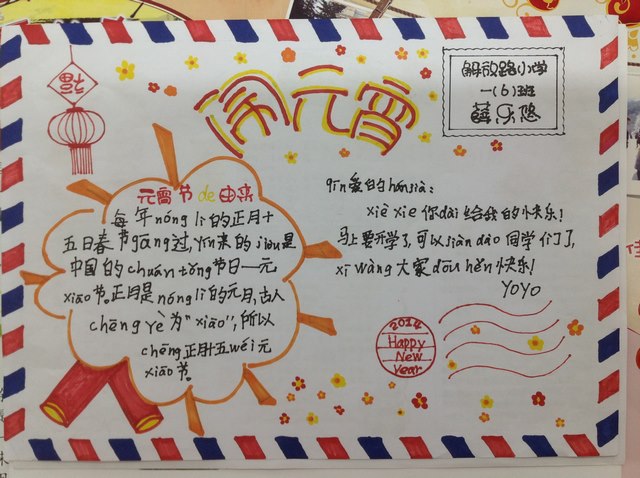 福
闹元宵
解放路小学
一(6)班
薛乐悠
元宵节de由来
每年nóng lì的正月十
五日春节gāng过,yín来的jiòu是
中国的chuán tǒng节日一元
xiāo节。正月是nóng lì的元月,古人
chēng yè为"xiāo",所以
chēng正月十五wéi元
xiāo节。
qīn爱的hánjià:
xiè xie你dài给我的快乐!
马上要开学了,可以jiàn dào同学们了,
xī wàng大家dōu hěn快乐!
YOYO
2014
Happy
New
Year